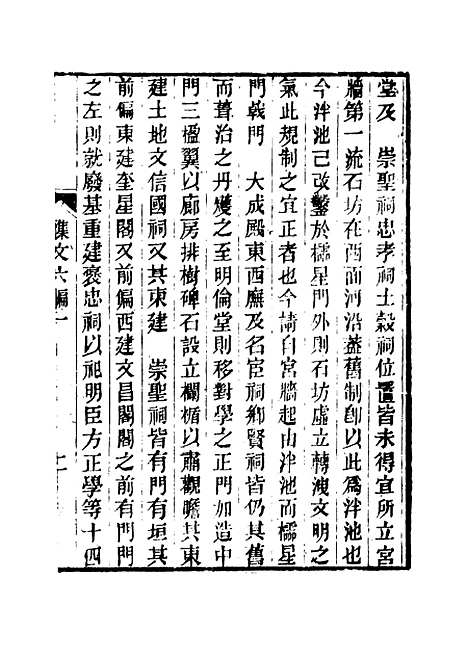 堂及　崇聖祠忠孝祠土穀祠位置皆未得宜所立宮
牆第一流石坊在西面河沿蓋舊制卽以此為泮池也
今泮池已改鑿於櫺星門外則石坊虛立轉洩文明之
氣此規制之宜正者也今請自宮牆起由泮池而櫺星
門戟門　大成殿東西廡及名宦祠鄉賢祠皆仍其舊
而葺治之丹雘之至明倫堂則移對學之正門加造中
門三楹翼以廊房排樹碑石設立欄楯以肅觀瞻其東
建土地文信國祠又其東建　崇聖祠皆有門有垣其
前偏東建奎星閣又前偏西建文昌閣閣之前有門門
之左則就廢基重建褒忠祠以祀明臣方正學等十四
集文六編一